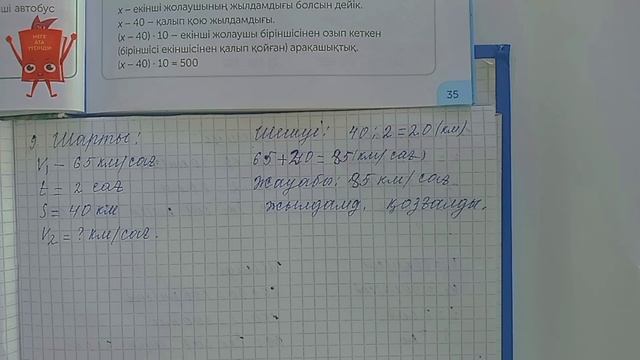 ші автобус
x – екінші жолаушының жылдамдығы болсын дейік.
x – 40 – қалып қою жылдамдығы.
(x – 40) · 10 – екінші жолаушы біріншісінен озып кеткен
(біріншісі екіншісінен қалып қойған) арақашықтық.
(x – 40) · 10 = 500
35
9. Шарты:
V₁ – 65 км/сағ
t = 2 сағ
S = 40 км
V₂ = ? км/сағ.
Шешуі: 40 : 2 = 20 (км)
65 + 20 = 85 (км/сағ)
Жауабы: 85 км/сағ
жылдамд. қозғалды.